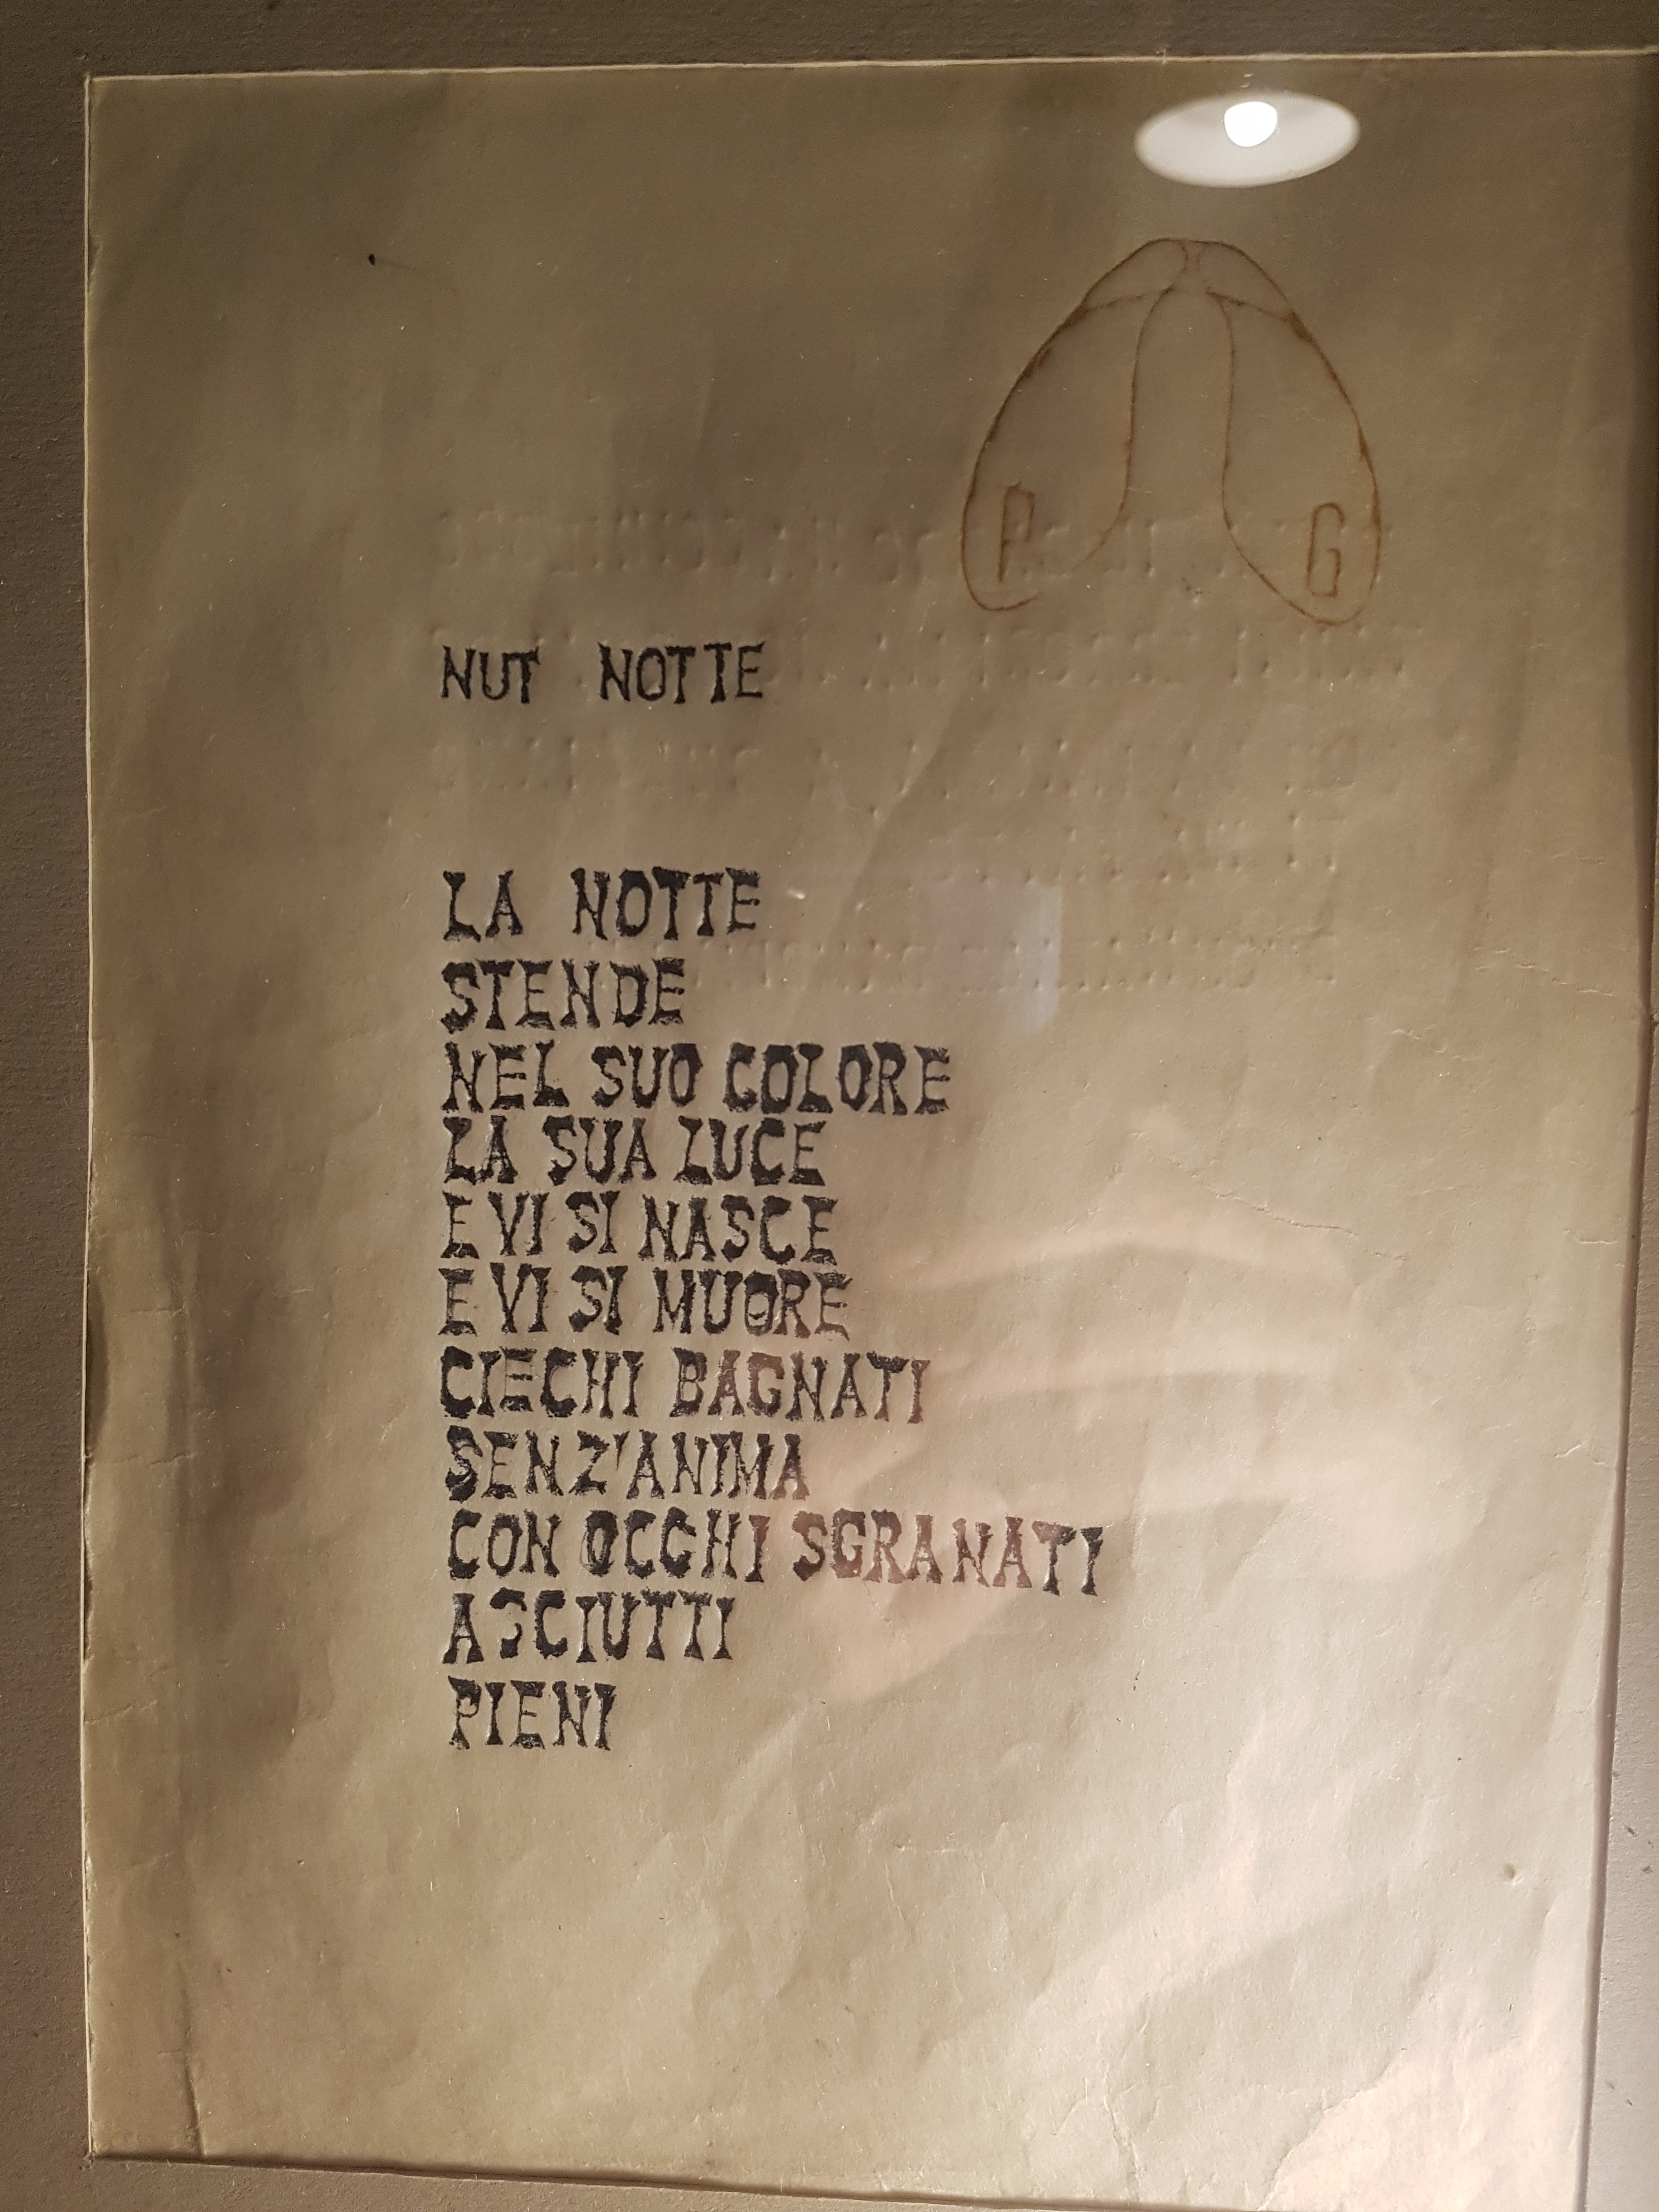 P G
NUT NOTTE
LA NOTTE
STENDE
NEL SUO COLORE
LA SUA LUCE
E VI SI NASCE
E VI SI MUORE
CIECHI BAGNATI
SENZ'ANIMA
CON OCCHI SGRANATI
ASCIUTTI
PIENI